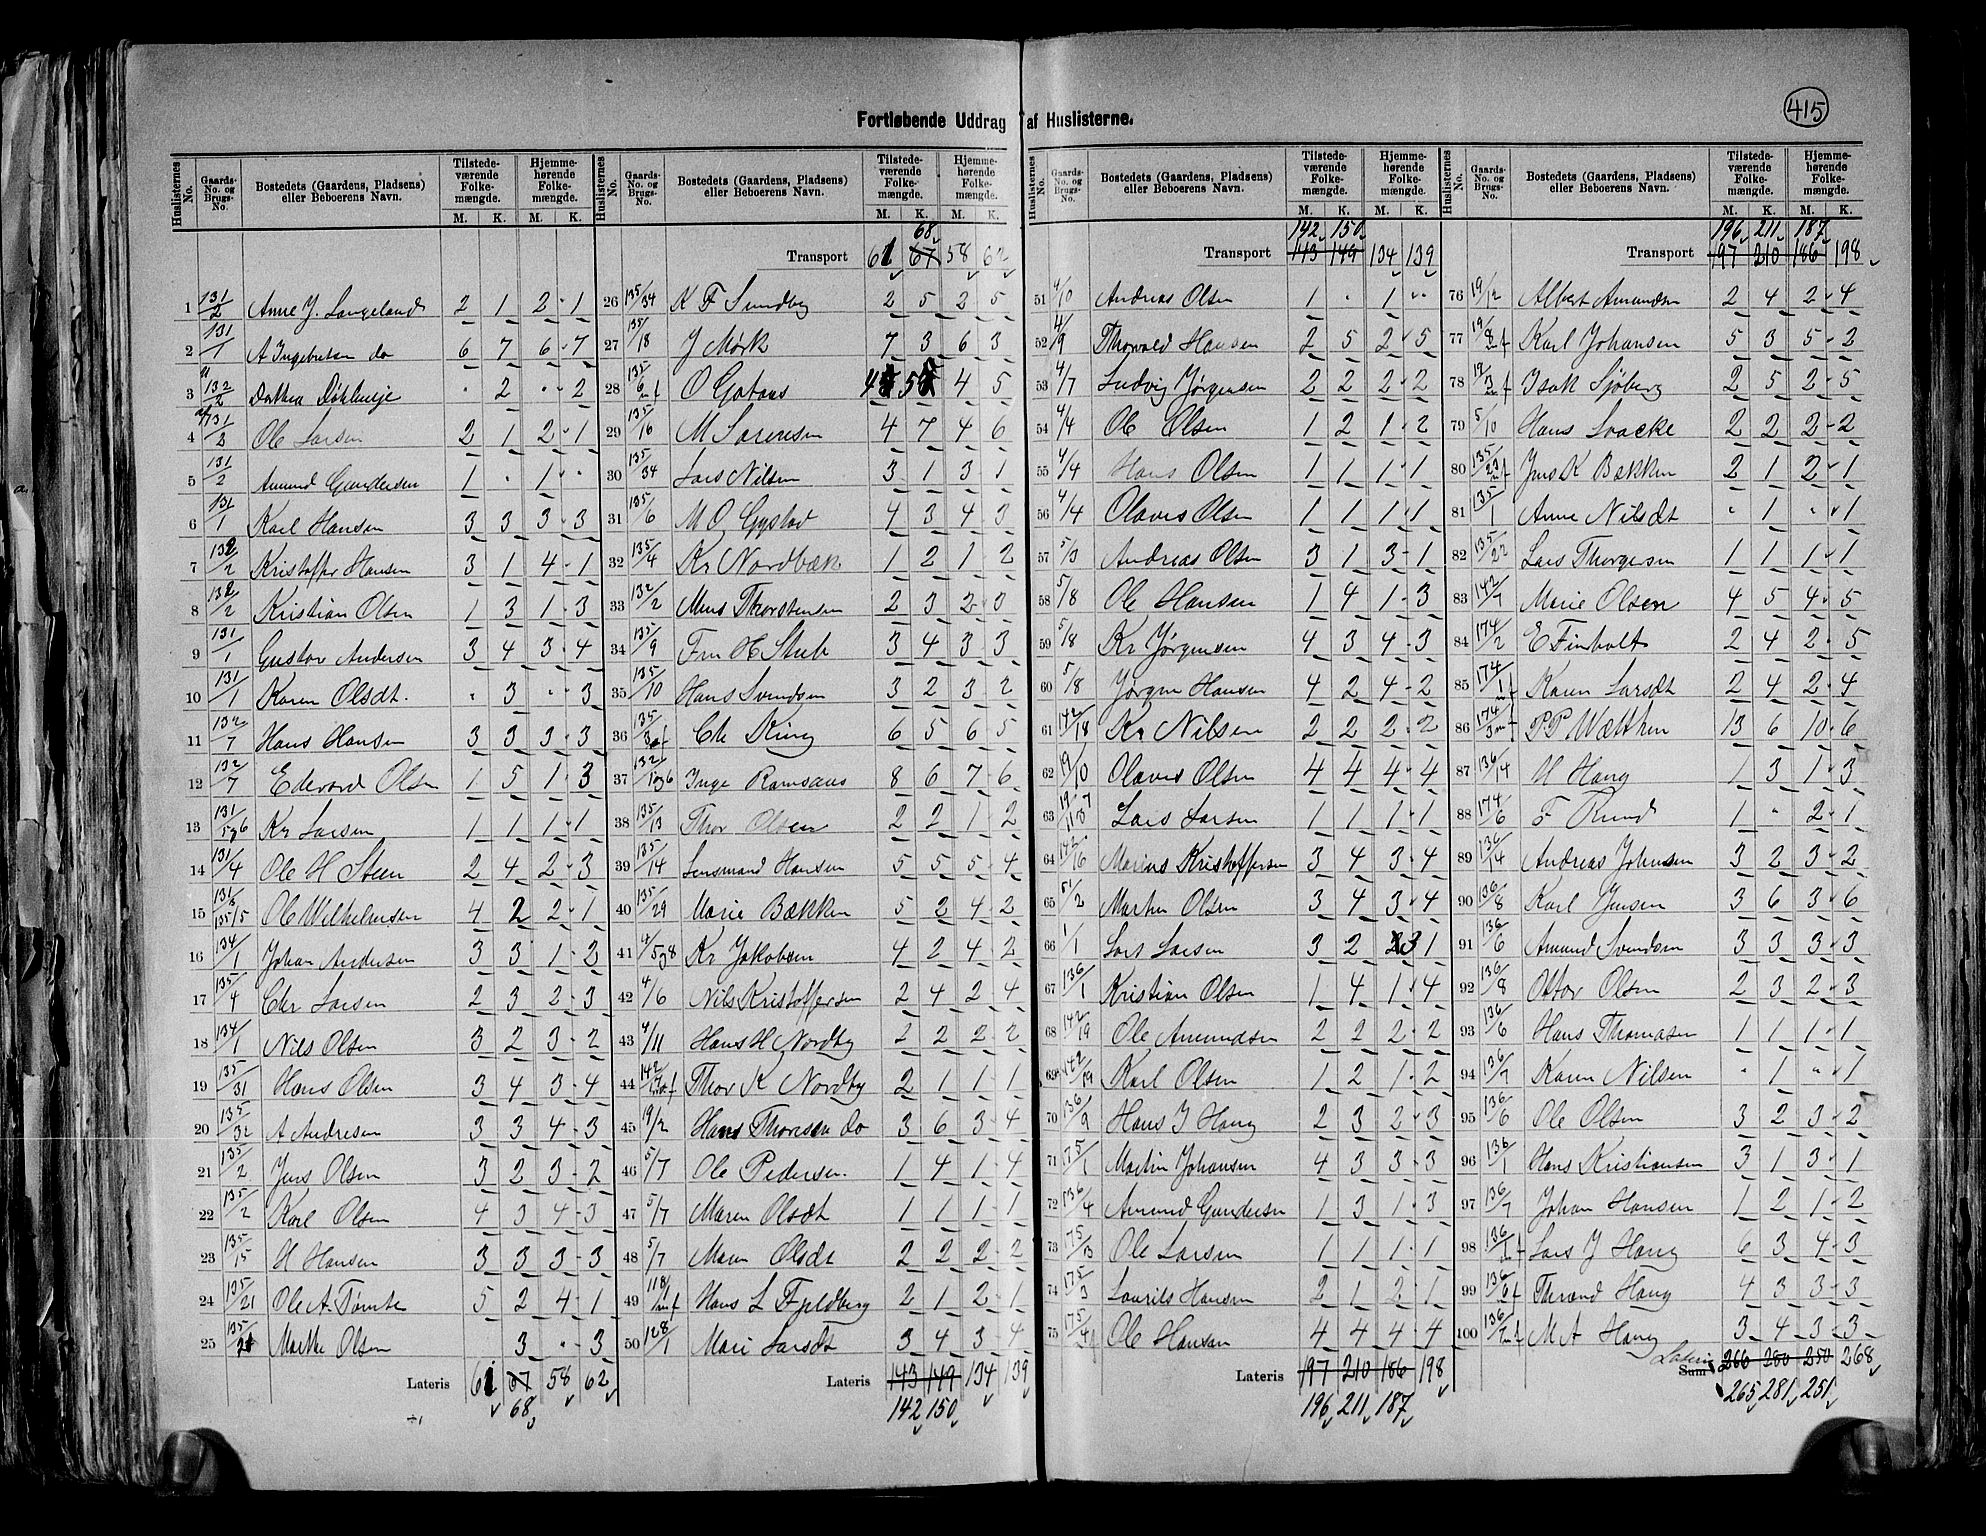 415
Fortløbende Uddrag af Huslisterne.
Huslisternes No. Gaards-No. og Brugs-No. Bostedets (Gaardens, Pladsens) eller Beboerens Navn. Tilstedeværende Folkemængde. M. K. Hjemmehørende Folkemængde. M. K.
1 131/2 Anne J. Langeland 2 1 2 1
2 131/1 A Ingebretsen do 6 7 6 7
3 132/2 Dorthea Døhlenje · 2 · 2
4 131/2 Ole Larsen 2 1 2 1
5 131/2 Amund Gundersen 1 · 1 ·
6 131/1 Karl Hansen 3 3 3 3
7 132/2 Kristoffer Hansen 3 1 4 1
8 132/2 Kristian Olsen 1 3 1 3
9 131/1 Gustav Andersen 3 4 3 4
10 131/1 Karen Olsdt. · 3 · 3
11 132/7 Hans Hansen 3 3 3 3
12 132/7 Edevard Olsen 1 5 1 3
13 131/5&6 Kr Larsen 1 1 1 1
14 131/4 Ole H Steen 2 4 2 3
15 131/3 135/5 Ole Wilhelmsen 4 2 2 1
16 134/1 Johan Andersen 3 3 1 2
17 135/4 Chr Larsen 2 3 2 3
18 134/1 Nils Olsen 3 2 3 2
19 135/31 Hans Olsen 3 4 3 4
20 135/32 A Andresen 3 3 4 3
21 135/2 Jens Olsen 3 2 3 2
22 135/2 Karl Olsen 4 3 4 3
23 135/15 H Hansen 3 3 3 3
24 135/21 Ole A. Tømte 5 2 4 1
25 135/21 Marthe Olsen 3 · 3
Lateris 61 67 58 62
68
÷1
Huslisternes No. Gaards-No. og Brugs-No. Bostedets (Gaardens, Pladsens) eller Beboerens Navn. Tilstedeværende Folkemængde. M. K. Hjemmehørende Folkemængde. M. K.
68
Transport 61 67 58 62
26 135/34 K F Sundby 2 5 2 5
27 135/18 J Mørk 7 3 6 3
28 135/6 mf O Gotaas 4 5 4 5
29 135/16 M Sørensen 4 7 4 6
30 135/34 Lars Nilsen 3 1 3 1
31 135/6 M O Gystad 4 3 4 3
32 135/4 Kr Nordbæk 1 2 1 2
33 132/2 Mens Thorstensen 2 3 2 3
34 135/9 Fru H Stub 3 4 3 3
35 135/10 Hans Svendsen 3 2 3 2
36 135/3 mf Chr Ring 6 5 6 5
37 132/1&6 Inge Ramsaas 8 6 7 6
38 135/13 Thor Olsen 2 2 1 2
39 135/14 Lensmand Hansen 5 5 5 4
40 135/29 Marie Bækken 5 2 4 2
41 4/5&8 Kr Jakobsen 4 2 4 2
42 4/6 Nils Kristoffersen 2 4 2 4
43 4/11 Hans H Nordby 2 2 2 2
44 142/ Thor K Nordby 2 1 1 1
45 19/2 Hans Thoresen do 3 6 3 4
46 5/7 Ole Pedersen. 1 4 1 4
47 5/7 Maren Olsdt 1 1 1 1
48 5/7 Maren Olsdt 2 2 2 2
49 118/1 mf Hans L Fjeldberg 2 1 2 1
50 128/1 Mari Larsdt 3 4 3 4
Lateris 143 149 134 139
142 150
Huslisternes No. Gaards-No. og Brugs-No. Bostedets (Gaardens, Pladsens) eller Beboerens Navn. Tilstedeværende Folkemængde. M. K. Hjemmehørende Folkemængde. M. K.
142 150
Transport 143 149 134 139
51 4/10 Andreas Olsen 1 · 1 ·
52 4/9 Thorvald Hansen 2 5 2 5
53 4/7 Ludvig Jørgensen 2 2 2 2
54 4/4 Ole Olsen 1 2 1 2
55 4/4 Hans Olsen 1 1 1 1
56 4/4 Olaves Olsen 1 1 1 1
57 5/3 Andreas Olsen 3 1 3 1
58 5/8 Ole Hansen 1 4 1 3
59 5/8 Kr Jørgensen 4 3 4 3
60 5/8 Jørgen Hansen 4 2 4 2
61 142/18 Kr Nilsen 2 2 2 2
62 19/10 Olaves Olsen 4 4 4 4
63 Lars Larsen 1 1 1 1
64 142/16 Marius Kristoffersen 3 4 3 4
65 51/2 Martin Olsen 3 4 3 4
66 1/1 Lars Larsen 3 2 3 1
67 136/1 Kristian Olsen 1 4 1 4
68 142/19 Ole Amundsen 2 2 2 2
69 142/19 Karl Olsen 1 2 1 2
70 136/9 Hans J Haug 2 3 2 3
71 175/1 Martin Johansen 4 3 3 3
72 136/4 Amund Gundersen 1 3 1 3
73 175/3 Ole Larsen 1 1 1 1
74 175/3 Laurits Hansen 2 1 2 1
75 175/4 Ole Hansen 4 4 4 4
Lateris 197 210 186 198
196 211 187
Huslisternes No. Gaards-No. og Brugs-No. Bostedets (Gaardens, Pladsens) eller Beboerens Navn. Tilstedeværende Folkemængde. M. K. Hjemmehørende Folkemængde. M. K.
196 211 187
Transport 197 210 186 198
76 19/2 Albert Amundsen 2 4 2 4
77 19/8 mf Karl Johansen 5 3 5 2
78 19/3 mf Isak Sjøberg 2 5 2 5
79 5/10 Hans Loacke 2 2 2 2
80 135/23 mf Jens K Bækken 2 1 2 1
81 135/1 Anne Nilsdt · 1 · 1
82 135/22 Lars Thorgersen 1 1 1 1
83 142/7 Marie Olsen 4 5 4 5
84 174/2 E Finholt 2 4 2 5
85 174/1 mf Karen Larsdt 2 4 2 4
86 174/3 mf P P Wætthen 13 6 10 6
87 136/14 H Haug 1 3 1 3
88 174/6 F Rund 1 · 2 1
89 136/4 Andreas Johnsen 3 2 3 2
90 136/8 Karl Jensen 3 6 3 6
91 136/6 Amund Svendsen 3 3 3 3
92 136/8 Ottar Olsen 2 3 2 3
93 136/6 Hans Thomasen 1 1 1 1
94 136/7 Karen Nilsen · 1 · 1
95 136/6 Ole Olsen 3 2 3 2
96 136/1 Hans Kristiansen 3 1 3 1
97 136/7 Johan Hansen 1 2 1 2
98 136/1 f Lars J Haug 6 3 4 3
99 136/6 f Thrond Haug 4 3 3 3
100 136/7 mf M A Haug 3 4 3 3
Lateris
Sum 266 280 250 268
265 281 251